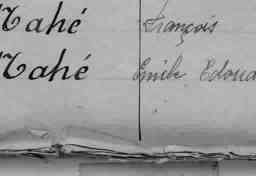 Mahé François
Mahé Emile Edoua